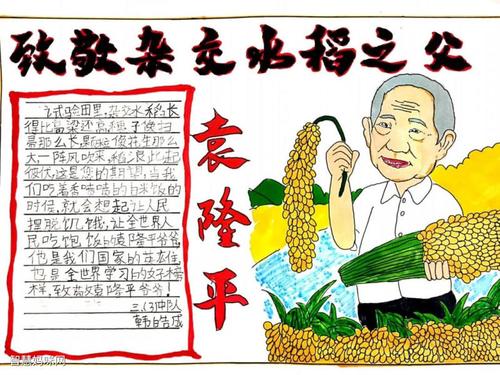 致敬杂交水稻之父
袁隆平
试验田里,杂交水稻长
得比高粱还高,穗子像扫
帚那么长,颗粒像花生那么
大一阵风吹来,稻浪此起
彼伏,这是您的期望,当我
们吃着香喷喷的白米饭的
时候,就会想起让人民
摆脱饥饿,让全世界人
民吃饱饭的袁隆平爷爷
他是我们国家的
也是全世界学习的好榜
样,致敬袁隆平爷爷!
三.(3)中队
韩皓成
智慧妈咪网